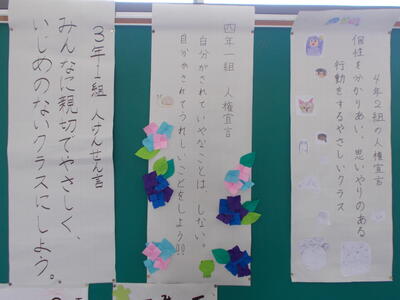 3年1組 人けんせん言
みんなに親切でやさしく、
いじめのないクラスにしよう。
四年一組 人権宣言
自分がされていやなことは、しない。
自分がされてうれしいことをしよう!!
4年2組の人権宣言
個性を分かりあい、思いやりのある
行動をするやさしいクラス